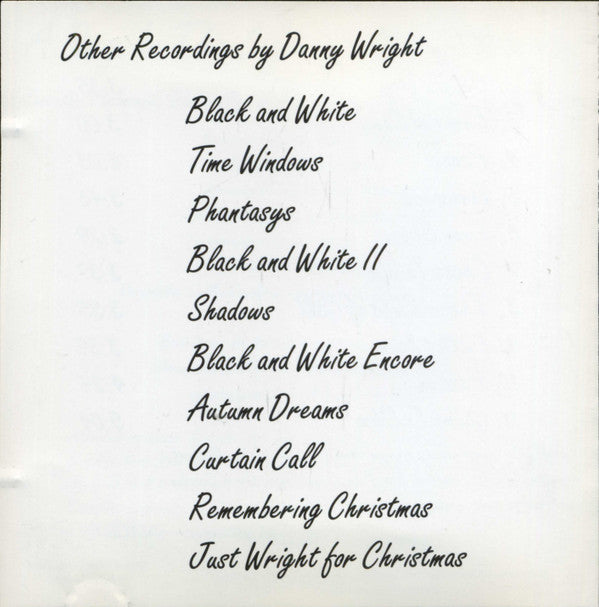 Other Recordings by Danny Wright
Black and White
Time Windows
Phantasys
Black and White II
Shadows
Black and White Encore
Autumn Dreams
Curtain Call
Remembering Christmas
Just Wright for Christmas